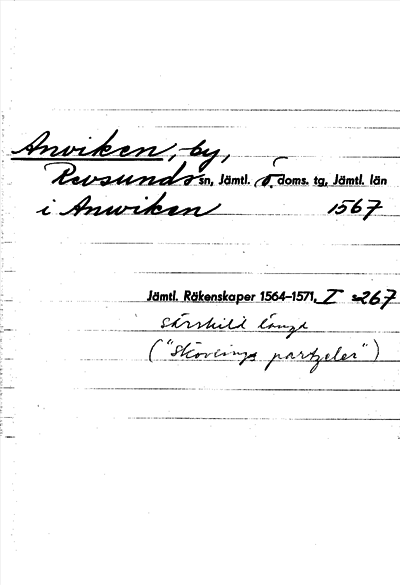 Anviken, by,
Revsunds sn, Jämtl. ö. doms. tg, Jämtl. län
i Anwiken 1567
Jämtl. Räkenskaper 1564–1571, I s 267
särskild längd
(" partzeler")